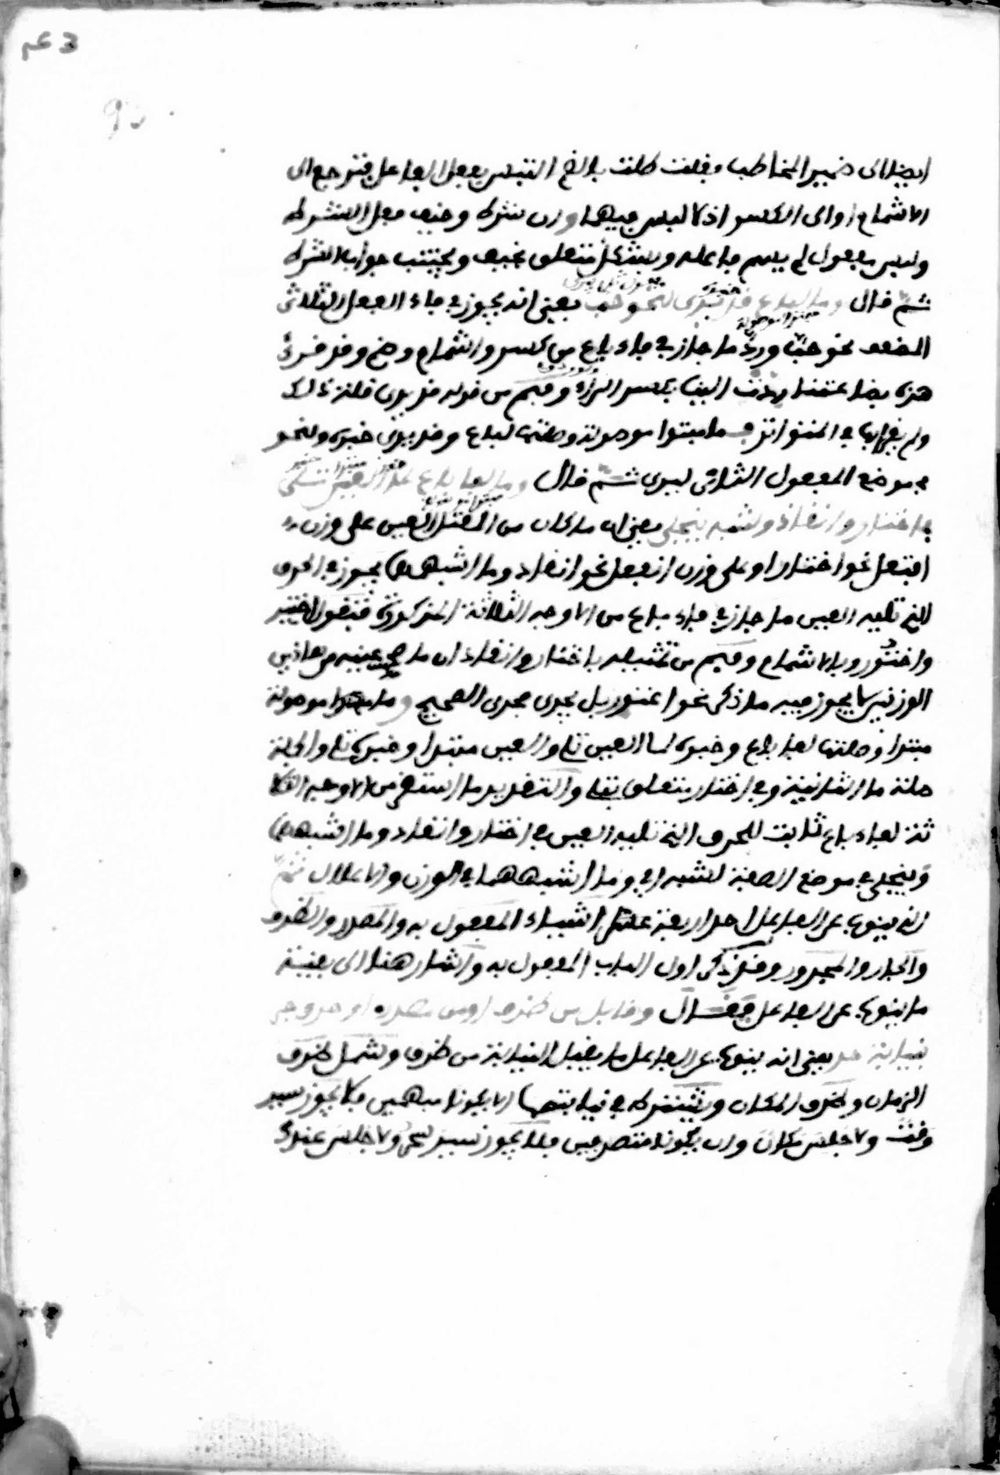 ايضا الى ضمير المخاطب وفلت طلت بالضم التبس بفعل الفاعل فترجع الى
الاشمام او الى الكسر اذ لا لبس فيهما وان شرط وخيف فعل الشرط
وليس مفعول لم يسم فاعله وبشكل متعلق بخيف ويجتنب جواب الشرط
ثم فال وما لباع فد يرى لنحو حب يعني انه يجوز في فاء الفعل الثلاثي
المضعف نحو حب ورد ما جاز في فاء باع من كسر واشمام وضم وفد فرئ
هذه بضاعتنا ردت الينا بكسر الراء وفهم من فوله فد يرى فلة ذلك
ولم يفرا بها في المتواتر وما مبتدا موصولة وصلتها لباع وفد يرى خبره ولنحو
في موضع المفعول الثاني ليرى ثم فال وما لفا باع لما العين تلي
في اختار وانفاد وشبه ينجلي يعني ان ما كان من المعتل العين على وزن
افتعل نحو اختار او على وزن انفعل نحو انفاد وما اشبههما يجوز في الحرف
الذي تليه العين ما جاز في فاء باع من الاوجه الثلاثة المذكورة فتفول اختير
واختور وبالاشمام وفهم من تمثيله باختار وانفاد ان ما صح عينه من هاذين
الوزنين لا يجوز فيه ما ذكر نحو اعتور بل يجري مجرى الصحيح وما مبتدا موصولة
مبتدا وصلتها لفا باع وخبره لما العين تلي والعين مبتدا وخبره تلي والجملة
صلة ما الثانية وفي اختار متعلق بتلي والتفدير ما استفر من الاوجه الثلا
ثة لفاء باع ثابت للحرف الذي تليه العين في اختار وانفاد وما اشبههما
وينجلي في موضع الصفة لشبه اي وما اشبههما في الوزن والاعلال ثم
انه ينوب عن الفاعل احد اربعة اشياء المفعول به والمصدر والظرف
والجار والمجرور وفد ذكر اول الباب المفعول به واشار هنا الى بفية
ما ينوب عن الفاعل ففال وفابل من ظرف او من مصدر او حرف جر
بنيابة حر يعني انه ينوب عن الفاعل ما يفبل النيابة من ظرف وشمل ظرف
الزمان وظرف المكان ويشترط في نيابتهما الا يكونا مبهمين فلا يجوز سير
وفت ولا جلس مكان وان يكونا متصرفين فلا يجوز سير سحر ولا جلس عندك